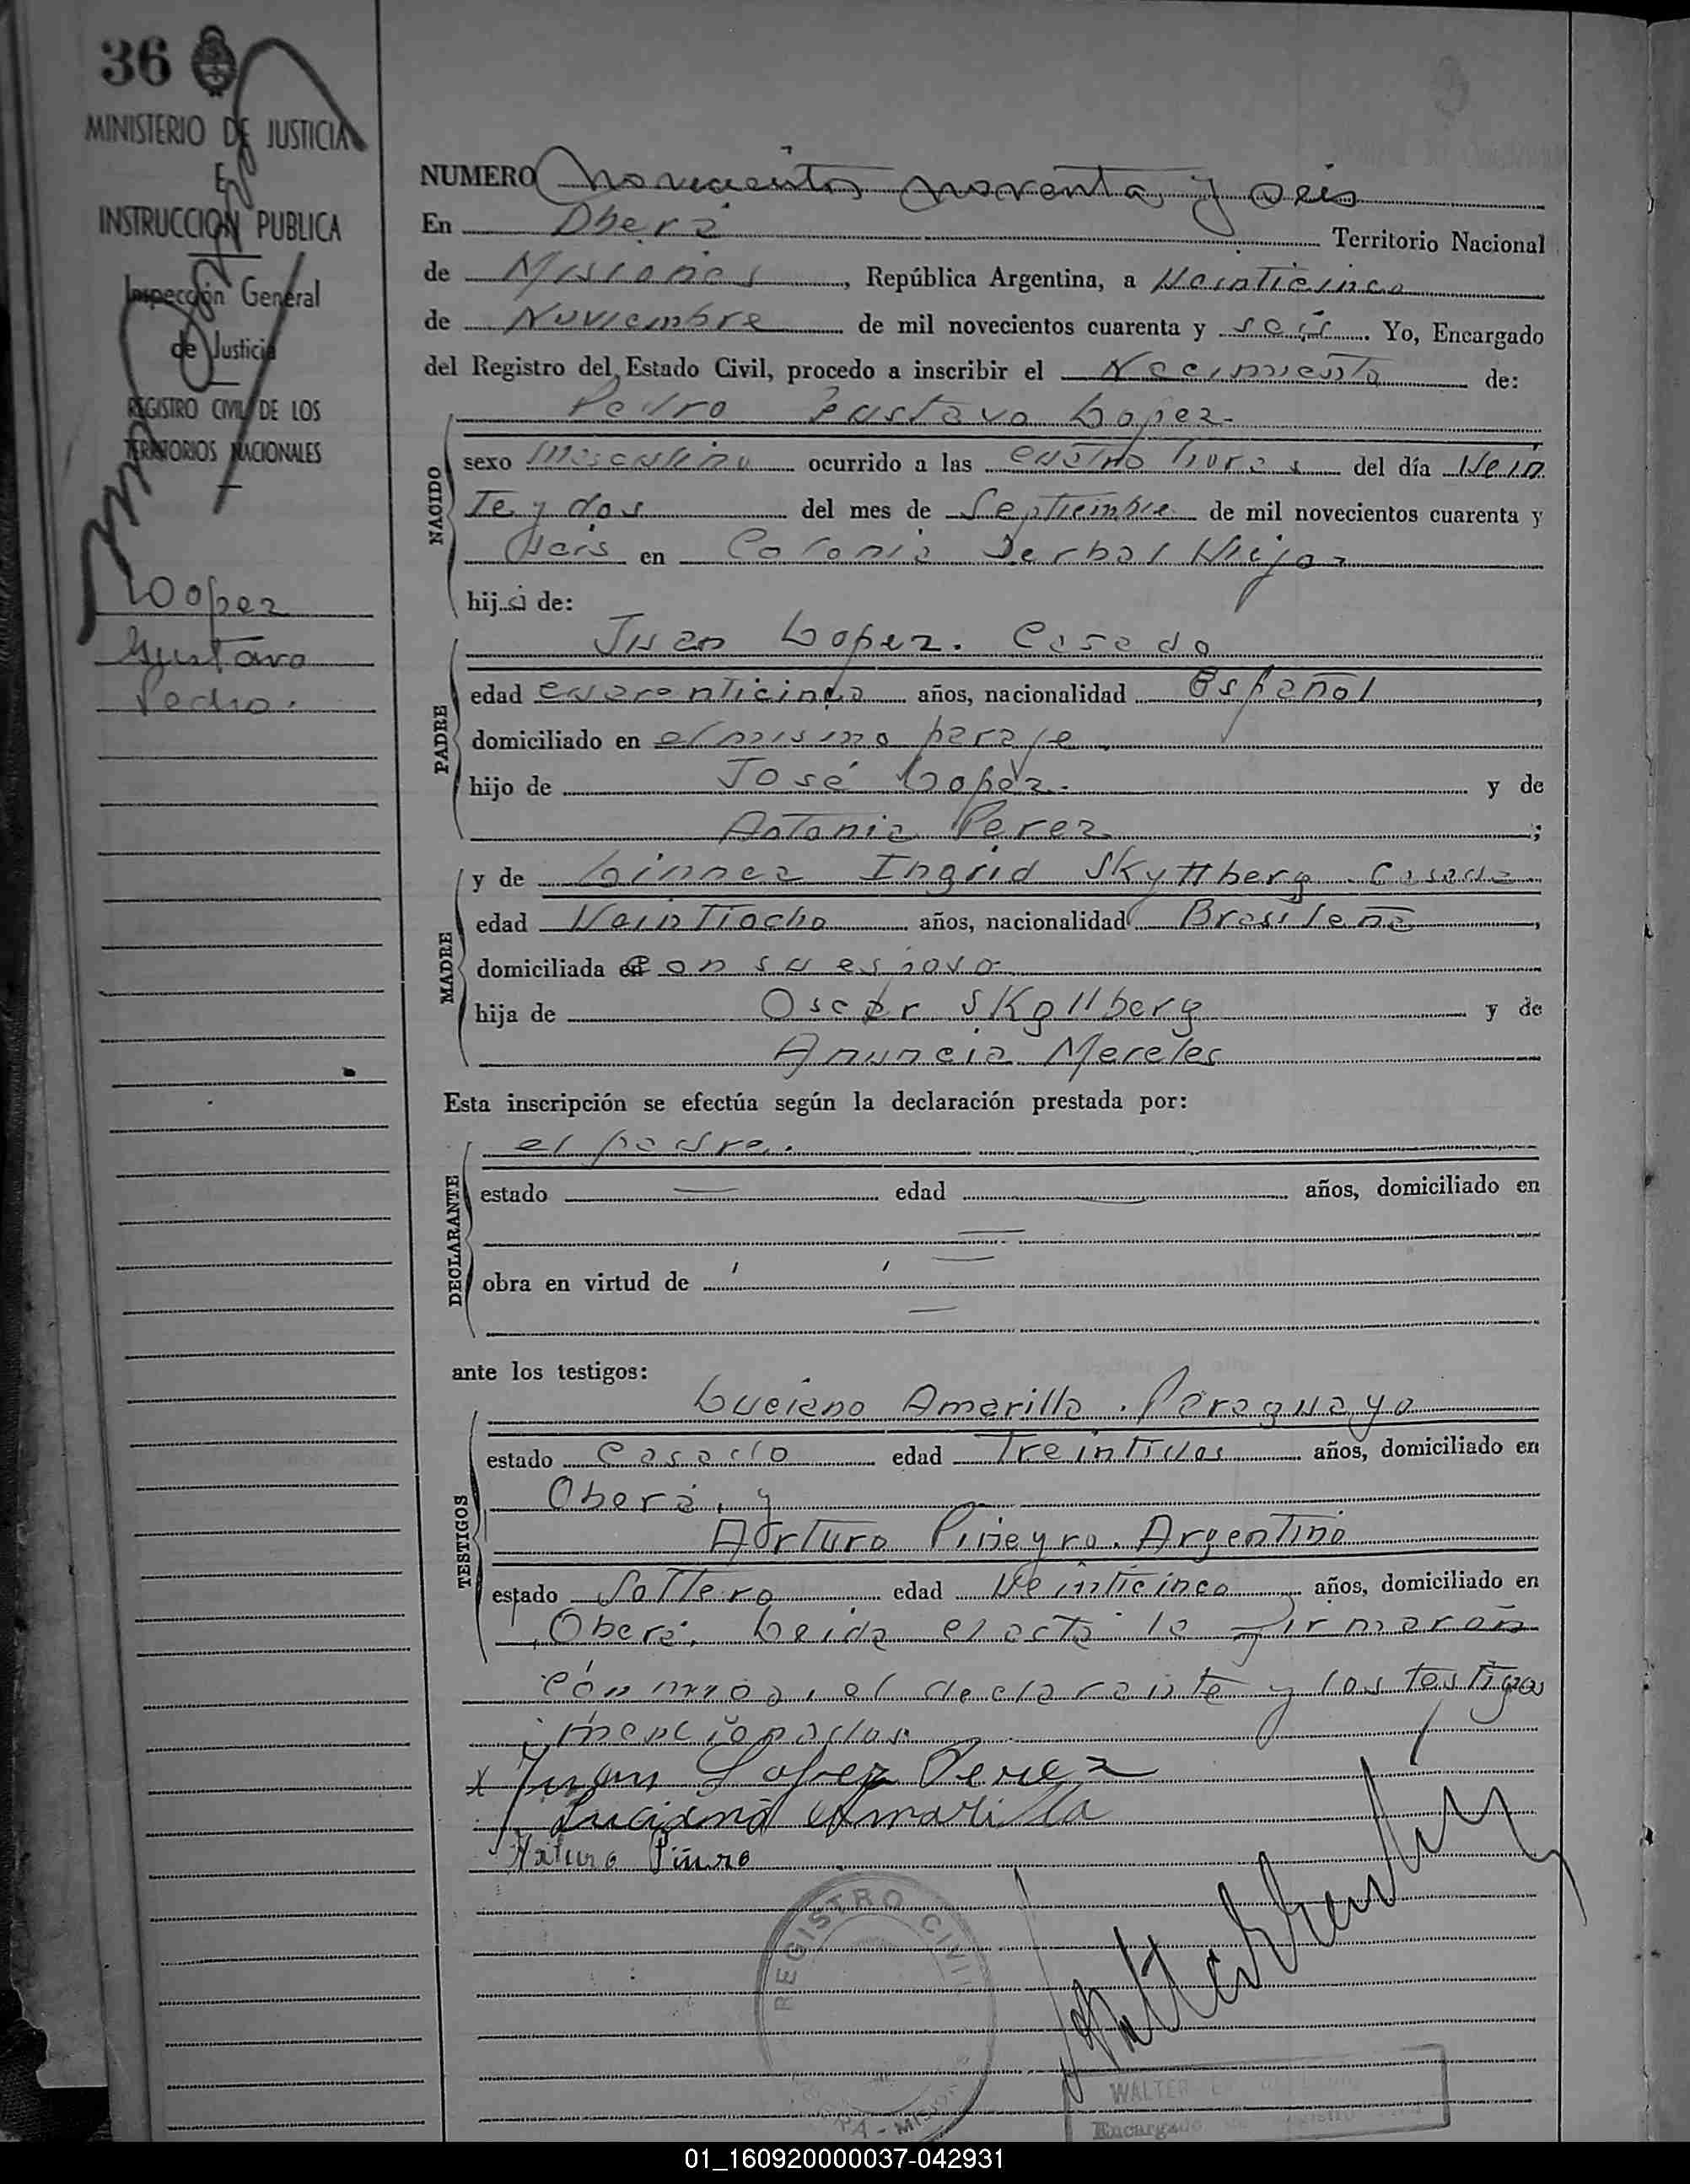 36
MINISTERIO DE JUSTICIA
E
INSTRUCCION PUBLICA
Inspección General
de Justicia
REGISTRO CIVIL DE LOS
TERRITORIOS NACIONALES
Lopez
Gustavo
Pedro.
NUMERO novecientos noventa y seis
En Oberá Territorio Nacional
de Misiones, República Argentina, a Veinticinco
de Noviembre de mil novecientos cuarenta y seis. Yo, Encargado
del Registro del Estado Civil, procedo a inscribir el Nacimiento de:
Pedro Gustavo Lopez.
NACIDO
sexo Masculino ocurrido a las cuatro horas del día Vein
Te y dos del mes de Septiembre de mil novecientos cuarenta y
Seis en Colonia Yerbal Viejo
hijo de:
PADRE
Juan Lopez. Casado
edad cuarenticinco años, nacionalidad Español,
domiciliado en el mismo paraje
hijo de José Lopez. y de
Antonia Perez;
MADRE
y de Linnea Ingrid Skyttberg. Casada
edad Veintiocho años, nacionalidad Brasileña,
domiciliada en con su esposo
hija de Oscar Skyllberg y de
Anuncia Mereles
Esta inscripción se efectúa según la declaración prestada por:
DECLARANTE
el padre.
estado — edad — años, domiciliado en
obra en virtud de
ante los testigos:
TESTIGOS
Luciano Amarilla. Paraguayo
estado Casado edad Treintidos años, domiciliado en
Oberá, y
Arturo Piñeyro. Argentino
estado Soltero edad Veinticinco años, domiciliado en
Oberá. Leida el acta la firmaron
conmigo, el declarante y los testigos
mencionados.
x Juan Lopez Perez
Luciano Amarilla
Arturo Piñero
REGISTRO CIVIL
WALTER
Encargado
01_160920000037-042931